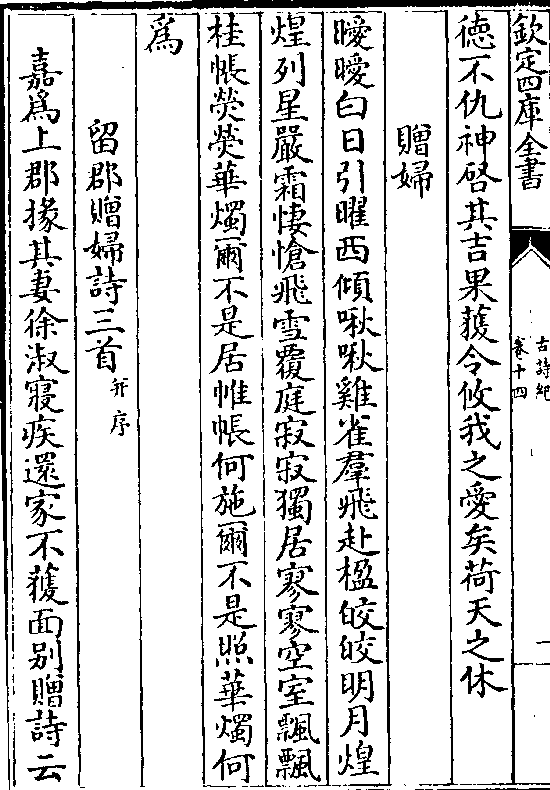 欽定四庫全書
古詩紀
卷十四
一
徳不仇神啓其吉果䕶令攸我之愛矣荷天之休
贈婦
曖曖白日引曜西傾啾啾雞雀羣飛赴楹皎皎明月煌
煌列星嚴霜悽愴飛雪覆庭寂寂獨居寥寥空室飄飄
桂帳熒熒華燭爾不是居帷帳何施爾不是照華燭何
為
留郡贈婦詩三首并序
嘉為上郡掾其妻徐淑寢疾還家不獲面别贈詩云